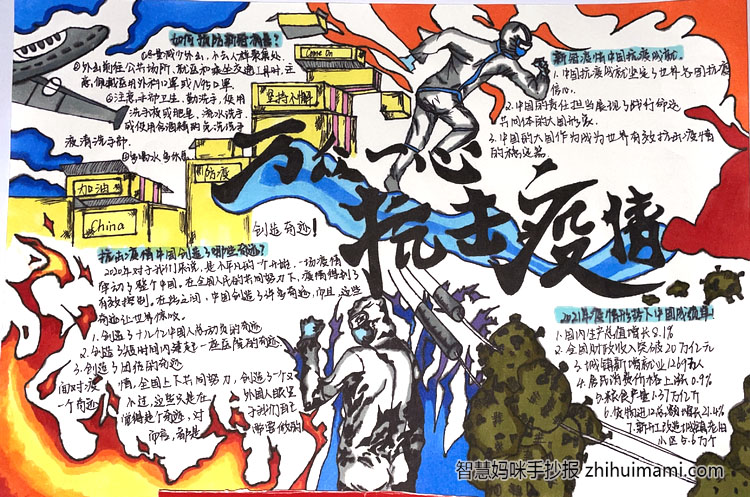 如何预防新冠病毒?
①尽量减少外出,不去人群聚集处。
②外出前往公共场所、就医和乘坐交通工具时,注
意佩戴医用外科口罩或N95口罩
③注意手部卫生,勤洗手,使用
洗手液或肥皂,流水洗手.
或使用含酒精的免洗洗手
液清洗手部.
④多喝水多休息
Come on
坚持不懈
防疫
加油
China
万众一心
抗击疫情
新冠疫情中国抗疫成就.
1.中国抗疫成就坚定了世界各国抗疫
信心.
2.中国的责任担当展现了践行命运
共同体的大国形象.
3.中国的大国作为成为世界有效抗击疫情
的稳定器.
创造奇迹!
抗击疫情中国创造了哪些奇迹?
2020年对于我们来说,是不平凡的一个开始,一场疫情
牵动了整个中国,在全国人民的共同努力下,疫情得到了
有效控制。在抗击间,中国创造了许多奇迹,而且,这些
奇迹让世界惊叹。
1.创造了十几亿中国人总动员的奇迹
2.创造了短时间内建起一座医院的奇迹.
3.创造了团结的奇迹
面对疫情,全国上下共同努力,创造了一个又
一个奇迹,不过,这些只是在外国人眼里
觉得是个奇迹,对于我们自己
而言,都是
2021年疫情形势下中国成绩单!
1.国内生产总值增长8.1%
2.全国财政收入突破20万亿元
3.城镇新增就业1269万人
4.居民消费价格上涨0.9%
5.粮食产量1.37万亿斤
6.货物进口总额增长21.4%
7.新开工改造城镇老旧
小区5.6万个
智慧妈咪手抄报 zhihuimami.com